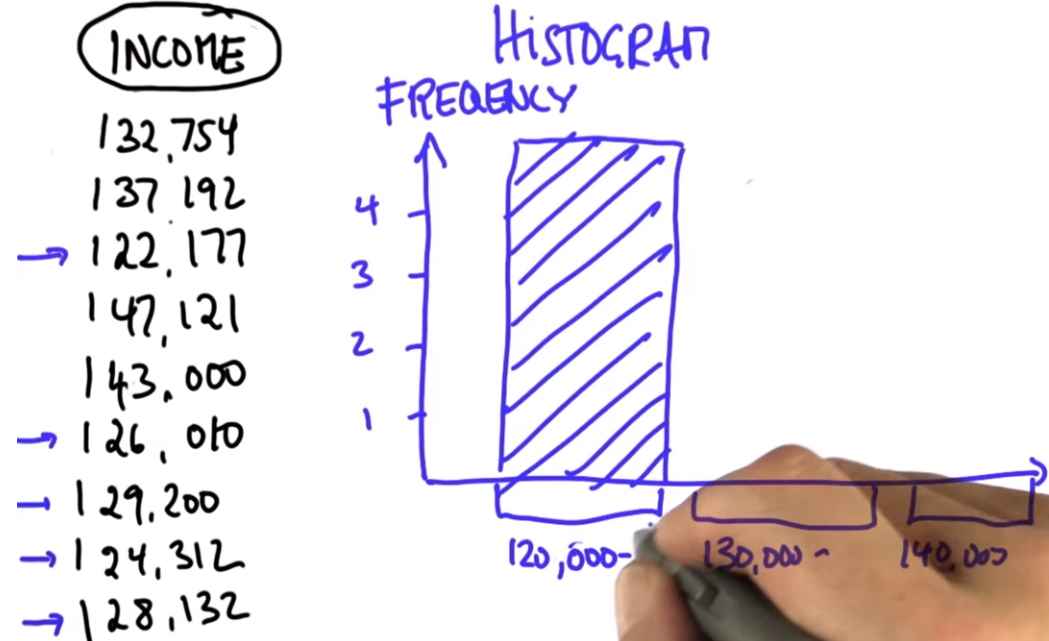 INCOME
132,754
137 192
→ 122,177
147,121
143.000
→ 126,010
→ 129,200
→ 124,312
→ 128,132
HiSTOGRAM
FREQENCY
4
3
2
1
120,000-
130,000-
140,000